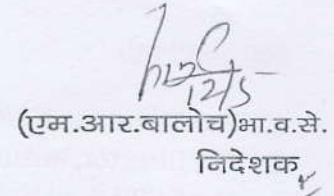 12/5
(एम.आर.बालोच)भा.व.से.
निदेशक